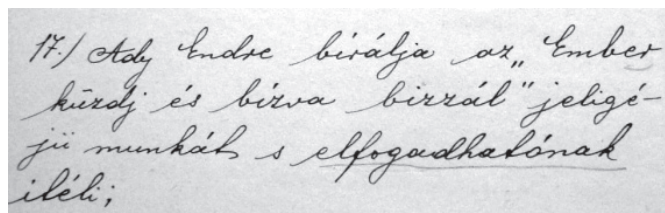 17.) Ady Endre birálja az „Ember
küzdj és bízva bizzál" jeligé-
jü munkát s elfogadhatónak
itéli;